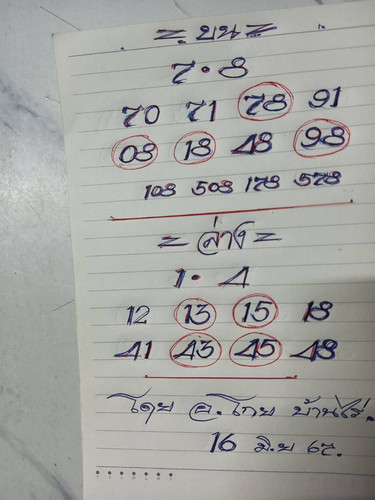 = บน =
7 • 8
70 71 78 91
08 18 48 98
108 508 178 578
= ล่าง =
1 • 4
12 13 15 18
41 43 45 48
โดย อ.โกย บ้านไร่.
16 มิ.ย 65.